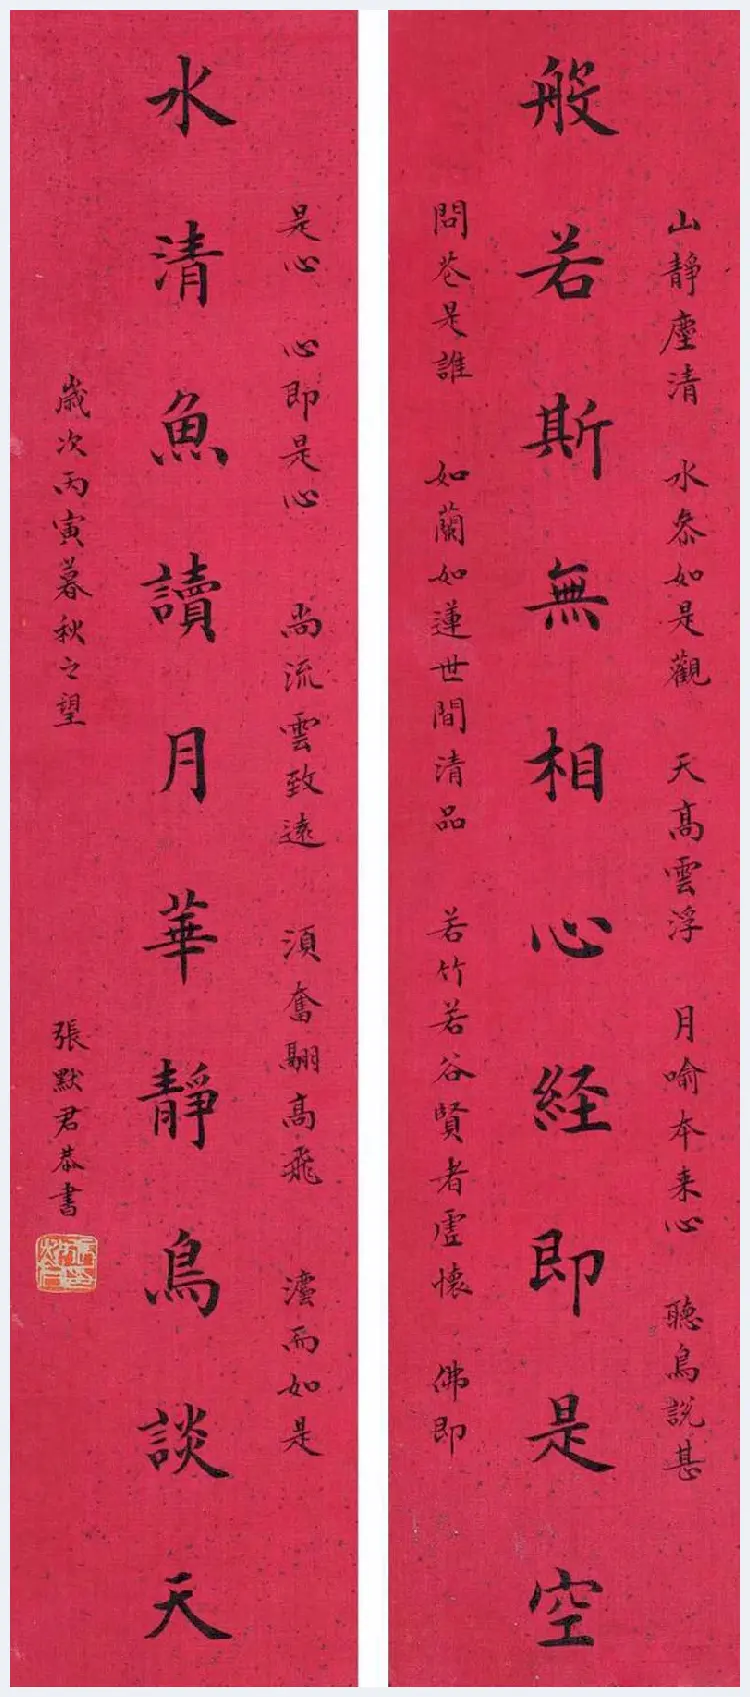 山靜塵清 水叅如是觀 天高雲浮 月喻本来心 聽鳥説甚
般若斯無相心経即是空
問花是誰 如蘭如蓮世間清品 若竹若谷賢者虛懷 佛即
是心 心即是心 尚流雲致遠 須奮翮高飛 而如是
水清魚讀月華靜鳥談天
歲次丙寅暮秋之望 張默君恭書